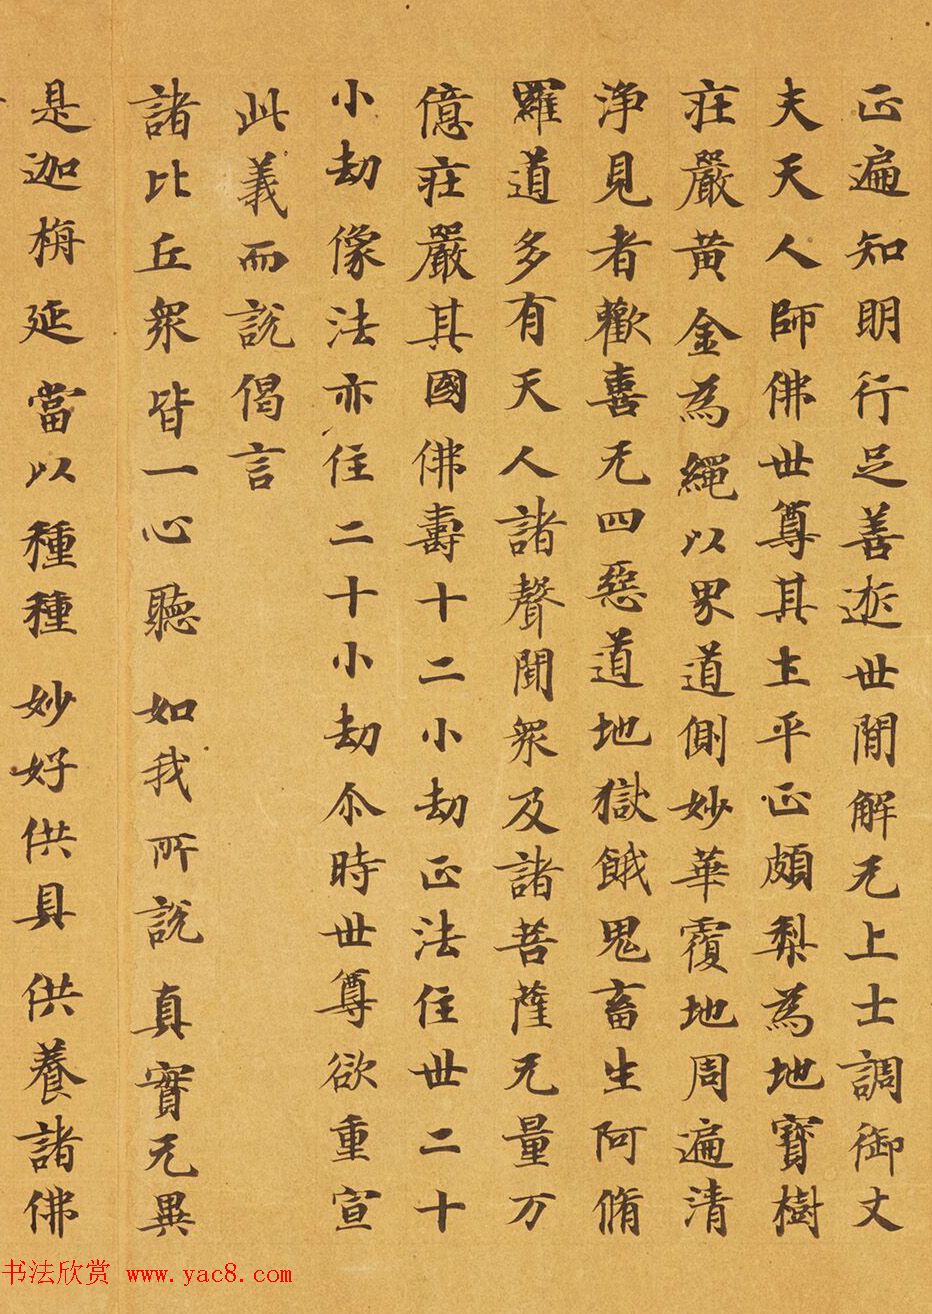 正遍知明行足善逝世間解无上士調御丈
夫天人師佛世尊其土平正頗梨為地寶樹
莊嚴黃金為繩以界道側妙華覆地周遍清
淨見者歡喜无四惡道地獄餓鬼畜生阿脩
羅道多有天人諸聲聞衆及諸菩薩无量万
億莊嚴其國佛壽十二小劫正法住世二十
小劫像法亦住二十小劫尒時世尊欲重宣
此義而說偈言
諸比丘衆皆一心聽 如我所說真實无異
是迦栴延當以種種 妙好供具供養諸佛
书法欣赏 www.yac8.com